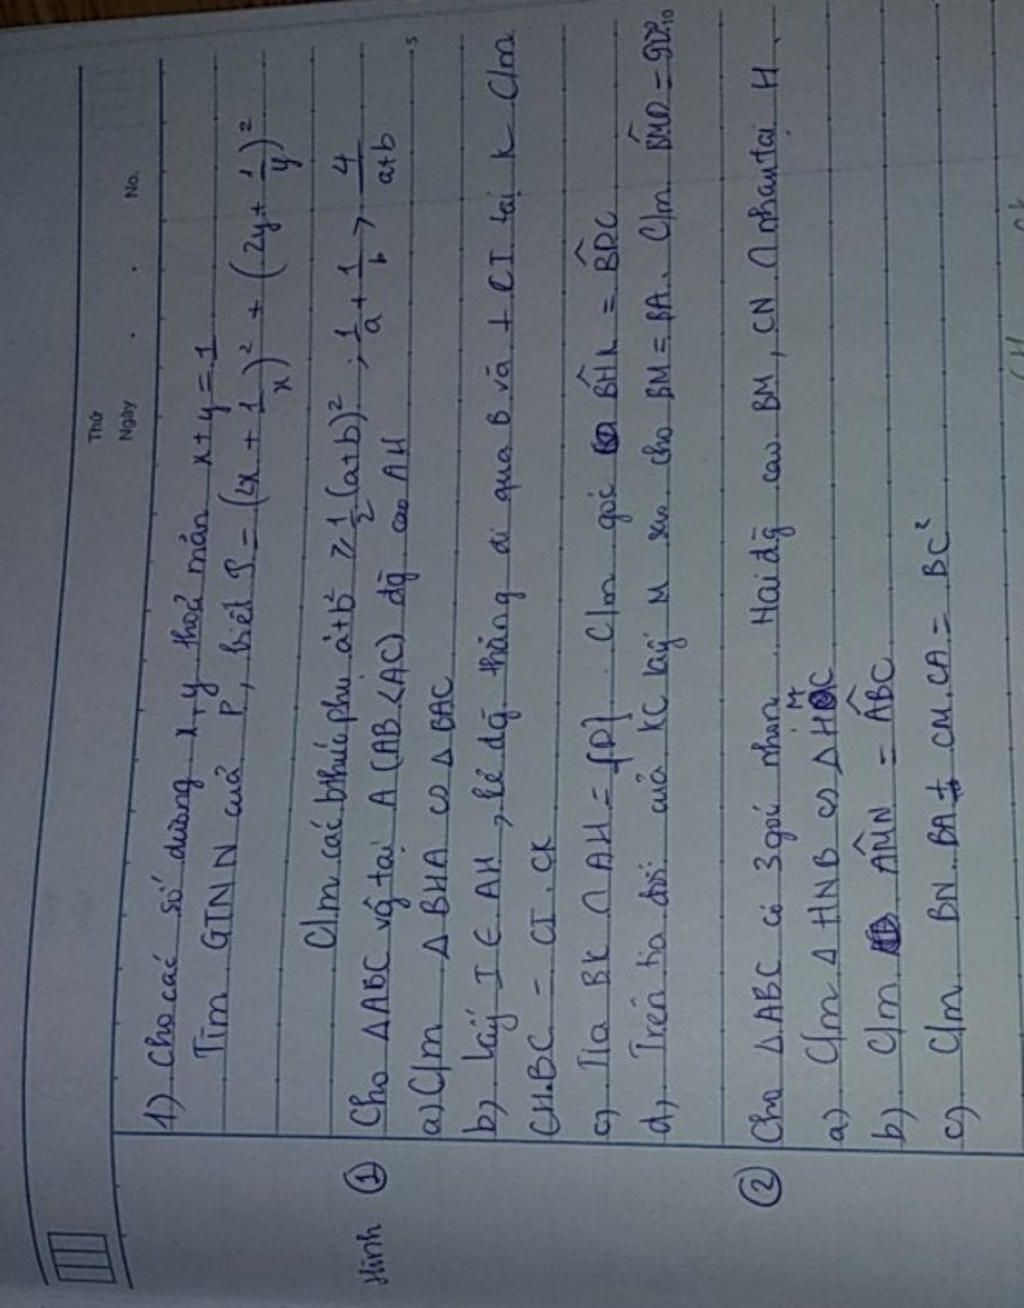 Thứ
Ngày . . No.
1) Cho các số dương x, y thoả mãn x+y = 1
Tìm GTNN của P, biết P = (2x + 1/x)² + (2y + 1/y)²
C/m các bthức phụ a²+b² ≥ 1/2 (a+b)² ; 1/a + 1/b > 4/a+b
5
Hình ① Cho ΔABC vg tại A (AB < AC) đg cao AH
a) C/m Δ BHA ∽ Δ BAC
b) Lấy I ∈ AH, kẻ đg thẳng đi qua B và ⊥ CI tại K C/m
CH.BC = CI.CK
c) Tia BK ∩ AH = {D}. C/m góc BĤK = BD̂C
d) Trên tia đối của KC lấy M sao cho BM = BA. C/m BM̂D = 90°.
10
② Cho ΔABC có 3 góc nhọn. Hai đg cao BM, CN ∩ nhau tại H.
a) C/m Δ HNB ∽ Δ HMC
b) C/m AM̂N = AB̂C
c) C/m BN.BA + CM.CA = BC²